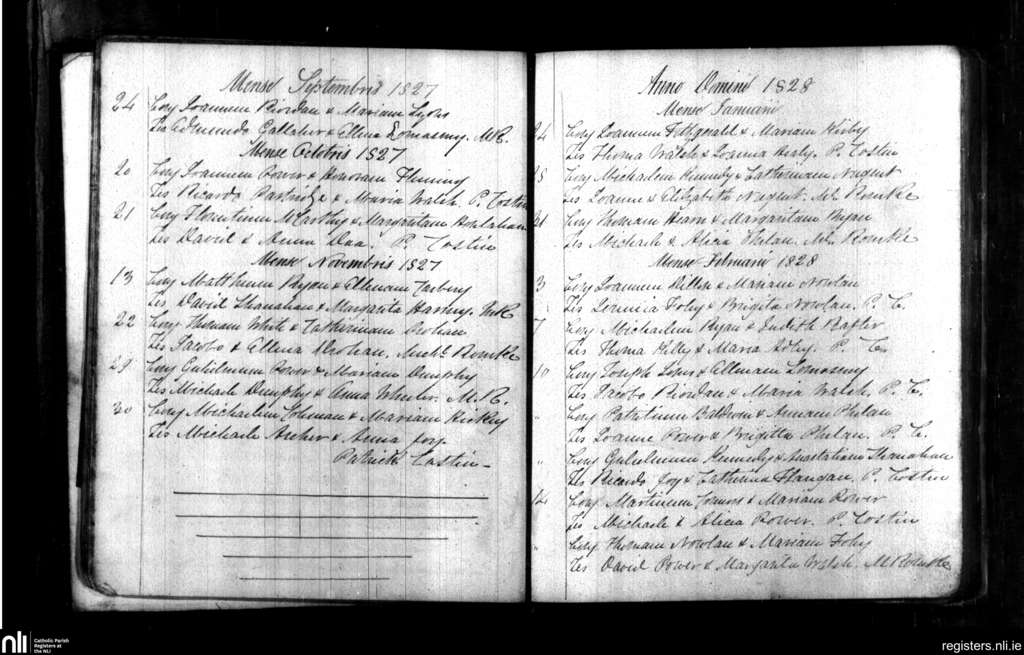 Mense Septembris 1827
24 Conj Joannem Riordan & Mariam Lyons
Tes Edmundo Gallaher & Ellena Lomasny. M.R.
Mense Octobris 1827
20 Conj Joannem Power & Honoram Fleming
Tes Ricardo Partridge & Maria Walsh. P. Costin
21 Conj Florentium McCarthy & Margaritam
Tes David & Anna Daa. P. Costin
Mense Novembris 1827
13 Conj Mattheum Ryan & Ellenam
Tes David Shanahan & Margarita Harney. MR
22 Conj Thomam White & Catharinam Drohan
Tes Jacobo & Ellena Drohan. Michl Rourke
29 Conj Gulielmum Power & Mariam Dunphy
Tes Michael Dunphy & Anna Wheeler. M.R.
30 Conj Michaelem Coleman & Mariam Hickey
Tes Michaele Archer & Anna Joy
Patrick Costin
Anno Domini 1828
Mense Januarii
24 Conj Joannem Fitzgerald & Mariam
Tes Thoma Walsh & Joanna P. Costin
Conj Michaelem Kennedy & Catherinam Nugent
Tes Joanne & Elizabeth Nugent. Ml Rourke
31 Conj Thomam Hearn & Margaritam Ryan
Tes Michaele & Alicia Phelan. Ml. Rourke
Mense Februarii 1828
3 Conj Joannem & Mariam Nowlan
Tes Foley & Brigita Nowlan. P. C.
7 Conj Michaelem Ryan & Judith Rafter
Tes Thoma Kelly & Maria P. C.
10 Conj Joseph & Ellenam Lomasny
Tes Jacobo Riordan & Maria Walsh. P. C.
" Conj Patritium Baldwin & Annam Phelan
Tes Joanne Power & Brigitta Phelan. P. C.
" Conj Gulielmum Kennedy & Anastatiam Shanahan
Tes Ricardo Joy & Catherina Flangan. P. Costin
14 Conj Martinum Connors & Mariam Power
Tes Michaele & Alicia Power. P. Costin
" Conj. Thomam Nowlan & Mariam Foley
Tes David Power & Margarita Walsh. M Rourke
nli
Catholic Parish
Registers at
the NLI
registers.nli.ie